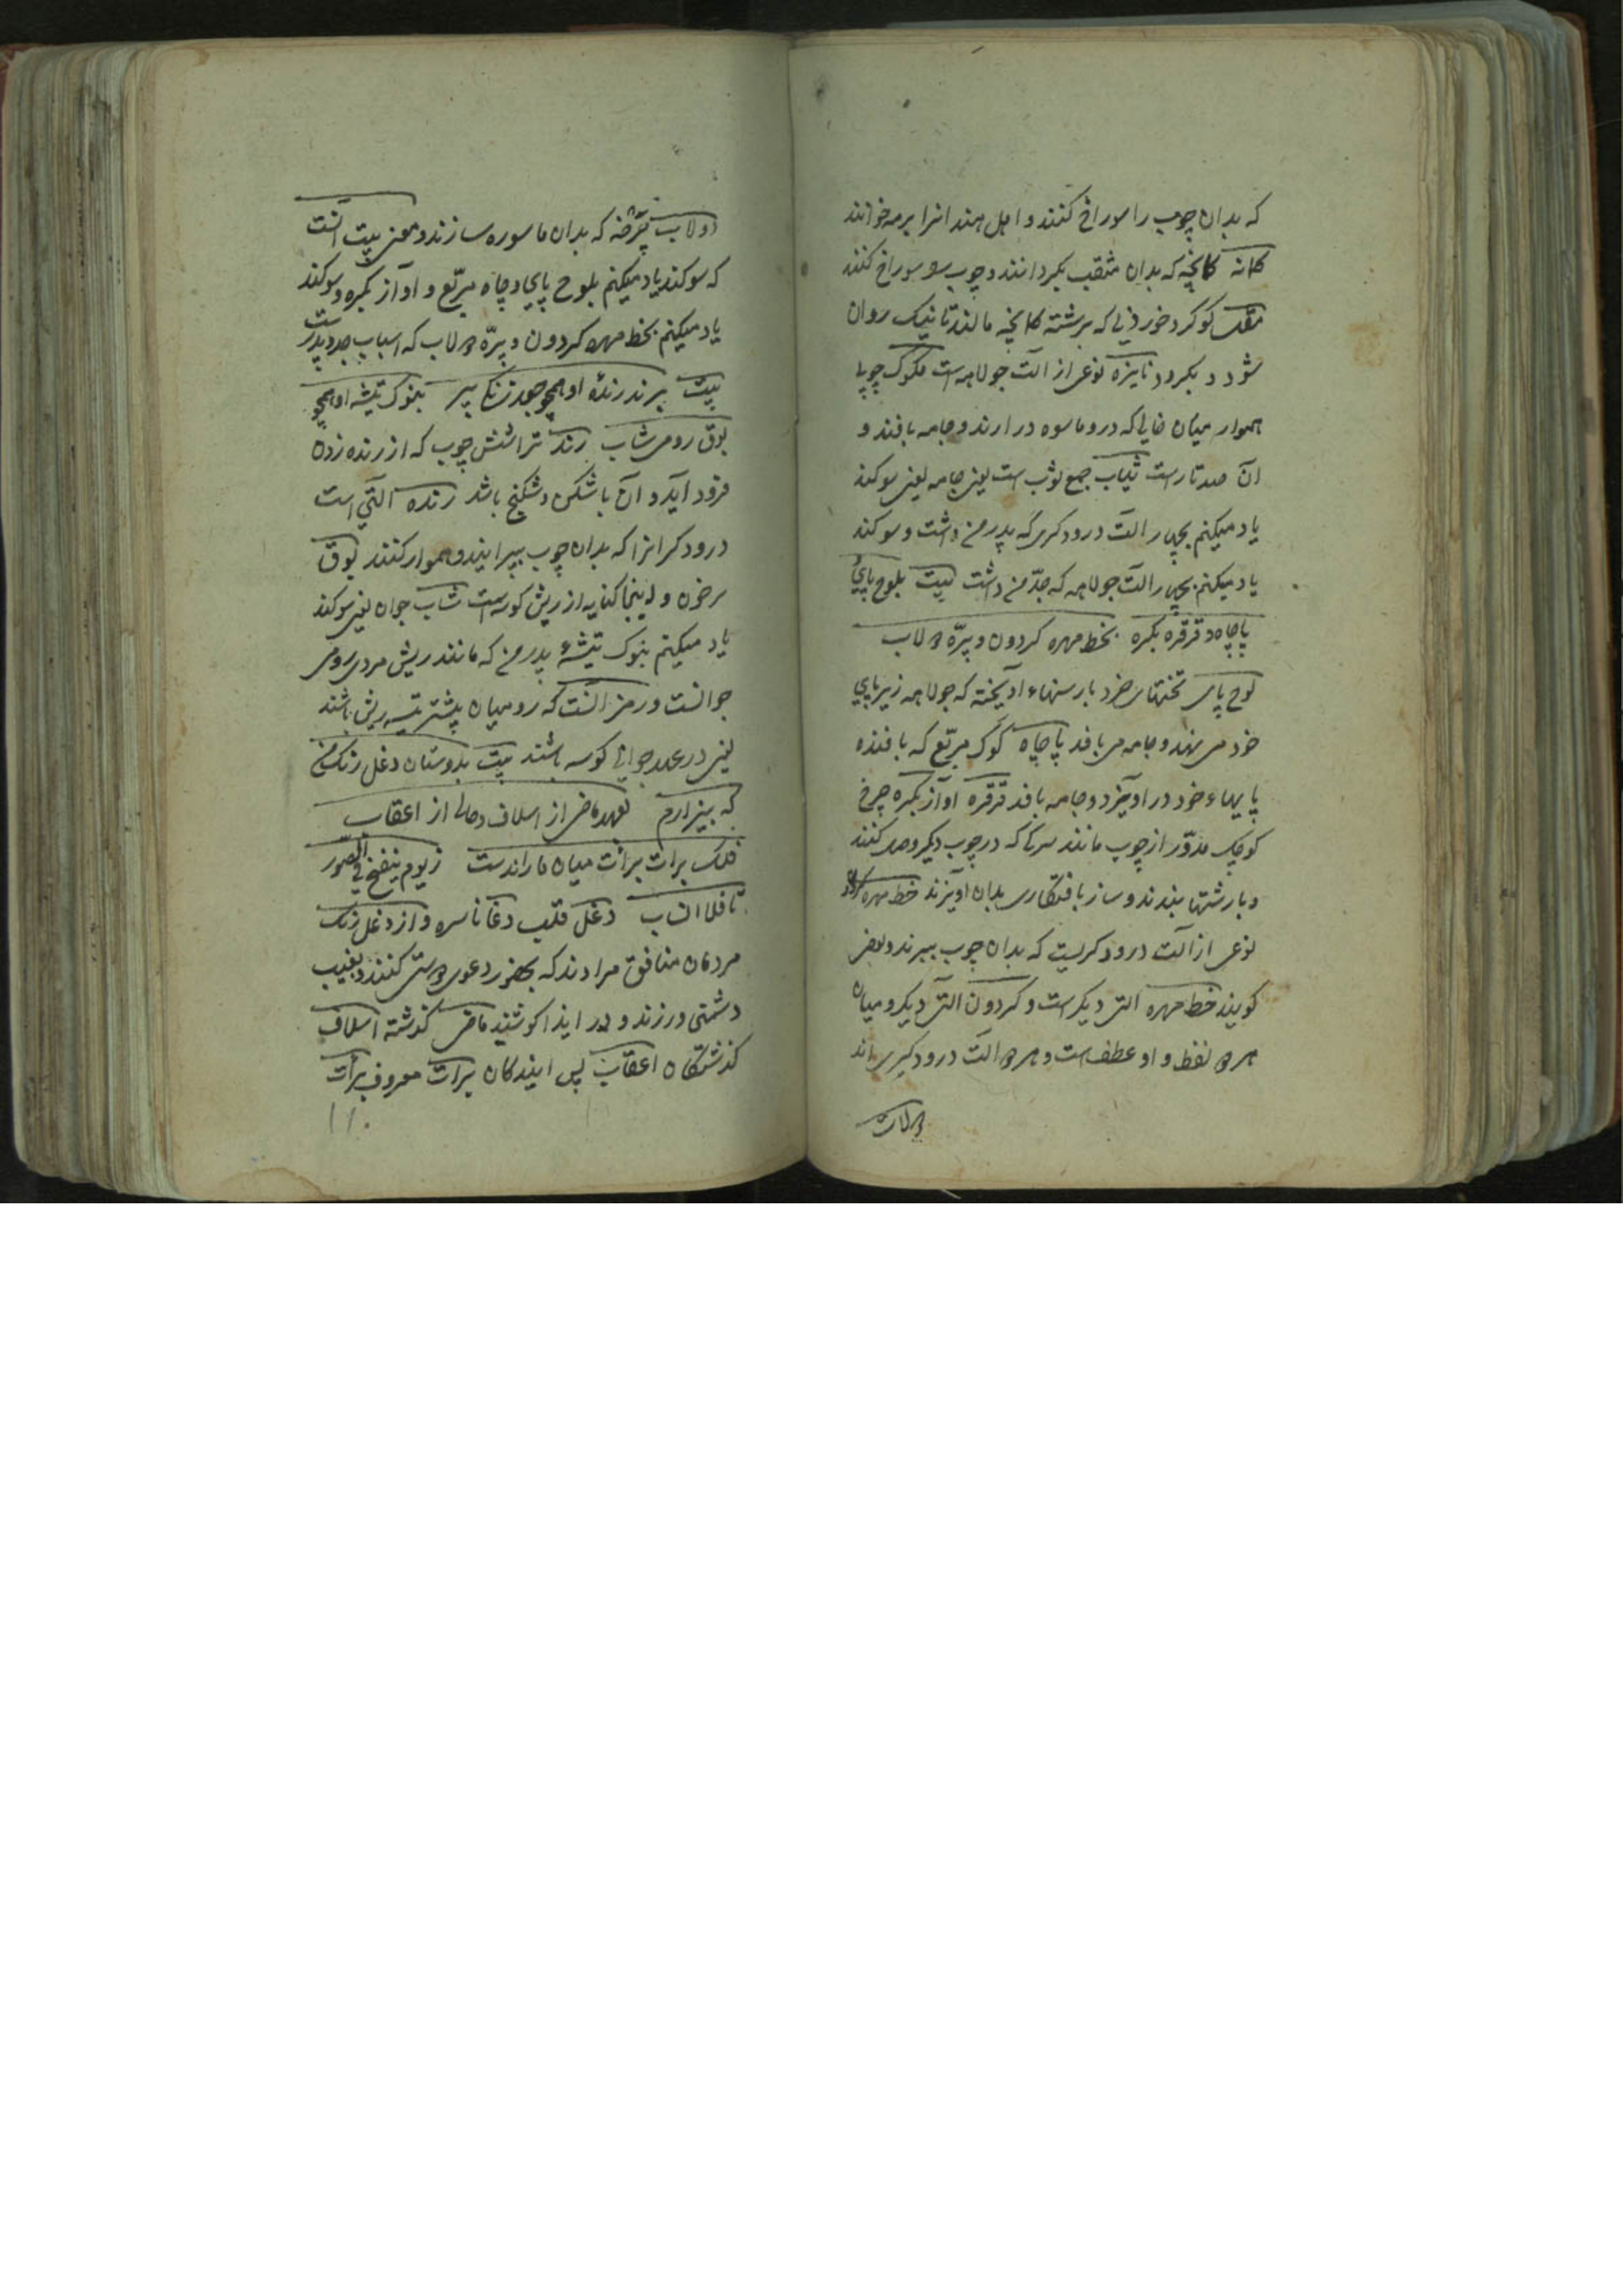 که بدان چوب را سوراخ کنند و اهل هند انرا برمه خوانند
کمانه کمانچه که بدان مثقب بکردانند و چوب سوراخ کنند
مقل کوکرد خورد که برشته کمانچه مالند تا نیک روان
شود و بکردد نایزه نوعی از آلت جولاهه است مکوک چوبی
هموار میان خالی که درو ماسوه در ارند و جامه بافند و
ان صد تارست ثیاب جمع ثوب است یعنی جامه یعنی سوکند
یاد میکنم بچهار الت درودکری که پدر من داشت و سوکند
یاد میکنم بچهار الت جولاهه که جد من داشت بیت بلوح پای
پاچاه و قرقره بکره بخط مهره کردون و پرّه دولاب
لوح پای تختهای خرد بارسنهاء آویخته که جولاهه زیر پای
خود می نهد و جامه می بافد پاچاه کوک مربّع که بافنده
پایهاء خود در اویزد و جامه بافد قرقره اواز بکره چرخ
کوچک مدوّر از چوب مانند که در چوب دیکر وصل کنند
و بارشتها بندند و ساز بافتکاری بدان آویزند خط مهره
نوعی از آلت درودکریست که بدان چوب ببرند و بعضی
کویند خط مهره التی دیکر است و کردون التی دیکر و میان
هر دو لفظ واو عطف است و هر دو الت درودکری اند
دولاب
دولاب چرخه که بدان ماسوره سازند و معنی بیت آنست
که سوکند یاد میکنم بلوح پای و چاه مربّع و اواز بکره و سوکند
یاد میکنم بخط مهره کردون و پرّه دولاب که اسباب جد و پدر ست
بیت برند رنده او همچو جعد زنکی پیر بنوک تیشه او همچو
بوق رومی شاب رند تراشش چوب که از رنده زدن
فرود آید و آن باشکن و شکنج باشد رنده آلتی است
درودکرانرا که بدان چوب بپیرایند و هموار کنند بوق
و اینجا کنایه از ریش کوسه است شاب جوان یعنی سوکند
یاد میکنم بنوک تیشهٔ پدر من که مانند ریش مردی رومی
جوانست و رمز آنست که رومیان پیشتر ریش باشند
یعنی در عهد جوانی کوسه باشند بیت بدوستان دغل رنک من
که بیزارم بعهد ماضی از اسلاف و حالی از اعقاب
فلک برات برأت میان ما راندست زیوم ینفخ فی الصور
تا فلا انساب دغل قلب دغا ناسره و از دغل رنک
مردمان منافق مرادند که بحضور دعوی دوستی کنند و بغیب
دشمنی ورزند و در ایذا کوشند ماضی کذشته اسلاف
کذشتکان اعقاب پس ایندکان برات معروف برأت
۱۱۰